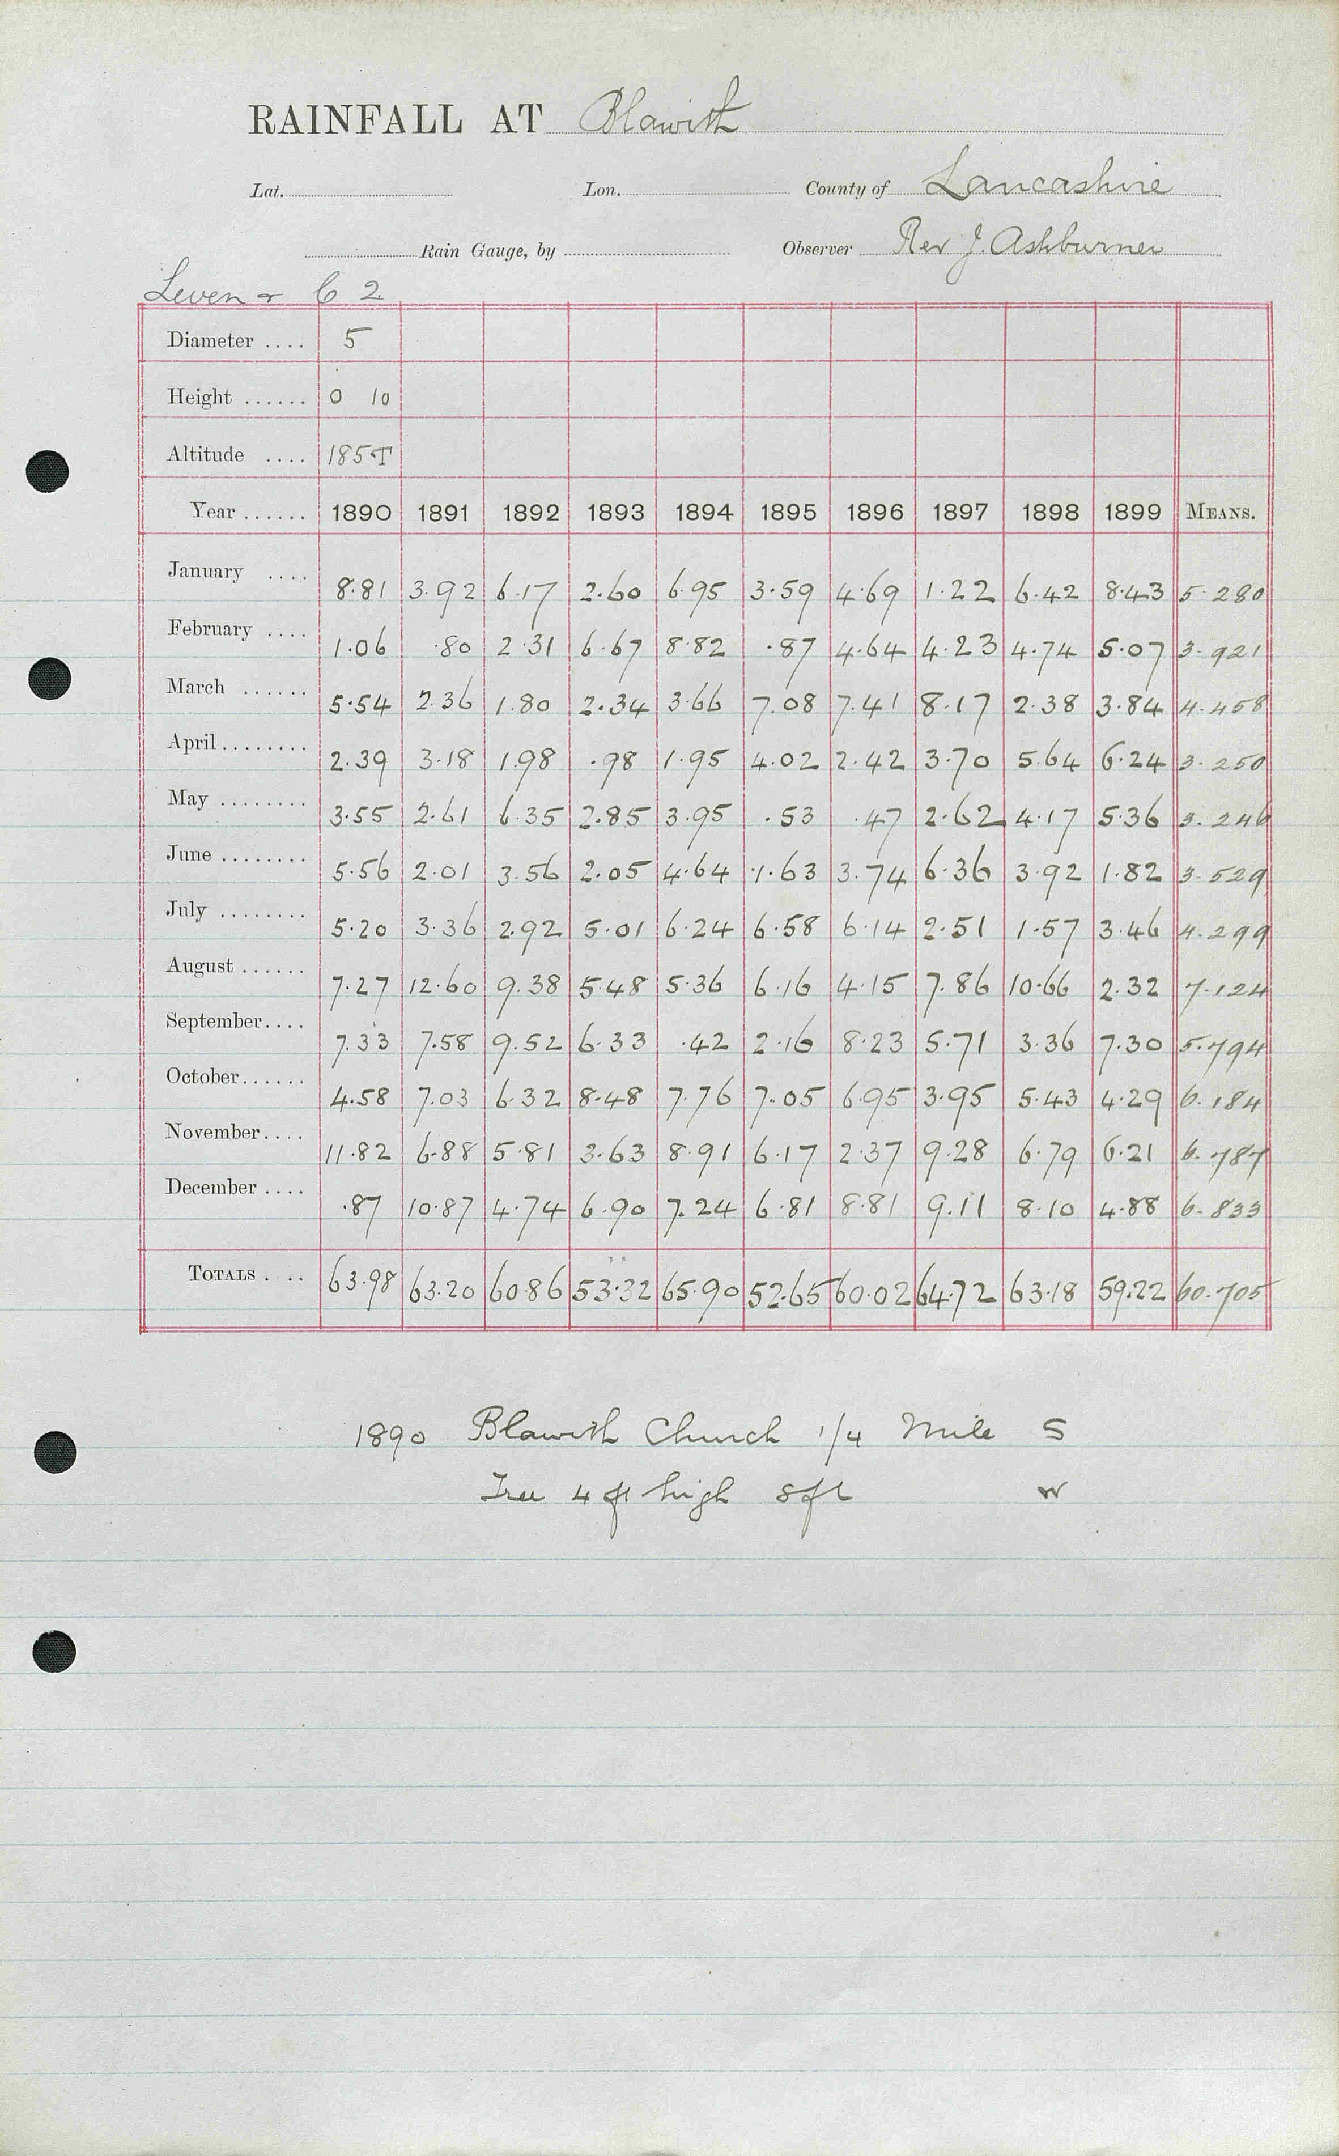 RAINFALL AT Blawith
Lat. Lon. County of Lancashire
Rain Gauge, by Observer Rev J. Ashburner
Leven & C 2
Diameter .... 5
Height ...... 0 10
Altitude .... 185T
Year ...... 1890 1891 1892 1893 1894 1895 1896 1897 1898 1899 MEANS.
January .... 8.81 3.92 6.17 2.60 6.95 3.59 4.69 1.22 6.42 8.43 5.280
February .... 1.06 .80 2.31 6.67 8.82 .87 4.64 4.23 4.74 5.07 3.921
March ...... 5.54 2.36 1.80 2.34 3.66 7.08 7.41 8.17 2.38 3.84 4.458
April ........ 2.39 3.18 1.98 .98 1.95 4.02 2.42 3.70 5.64 6.24 3.250
May ........ 3.55 2.61 6.35 2.85 3.95 .53 .47 2.62 4.17 5.36 3.246
June ........ 5.56 2.01 3.56 2.05 4.64 1.63 3.74 6.36 3.92 1.82 3.529
July ........ 5.20 3.36 2.92 5.01 6.24 6.58 6.14 2.51 1.57 3.46 4.299
August ...... 7.27 12.60 9.38 5.48 5.36 6.16 4.15 7.86 10.66 2.32 7.124
September .... 7.33 7.58 9.52 6.33 .42 2.16 8.23 5.71 3.36 7.30 5.794
October ...... 4.58 7.03 6.32 8.48 7.76 7.05 6.95 3.95 5.43 4.29 6.184
November .... 11.82 6.88 5.81 3.63 8.91 6.17 2.37 9.28 6.79 6.21 6.787
December .... .87 10.87 4.74 6.90 7.24 6.81 8.81 9.11 8.10 4.88 6.833
TOTALS . .. 63.98 63.20 60.86 53.32 65.90 52.65 60.02 64.72 63.18 59.22 60.705
1890 Blawith Church 1/4 Mile S
Tree 4 ft high 8ft W